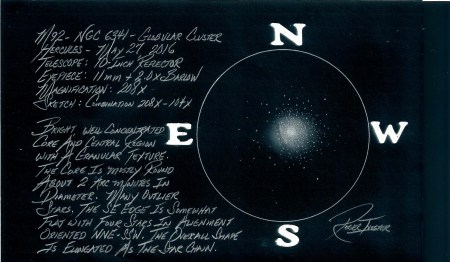 M92 - NGC 6341 - Globular Cluster
Hercules - May 27, 2016
Telescope: 10-Inch Reflector
Eyepiece: 11mm + 2.0x Barlow
Magnification: 208X
Sketch: Combination 208X - 104X
Bright, well concentrated
core and central region
with a granular texture.
The core is mostly round
about 2 arc minutes in
diameter. Many outlier
stars. The SE edge is somewhat
flat with four stars in alignment
oriented NNE-SSW. The overall shape
is elongated as the star chain.
N
E
W
S